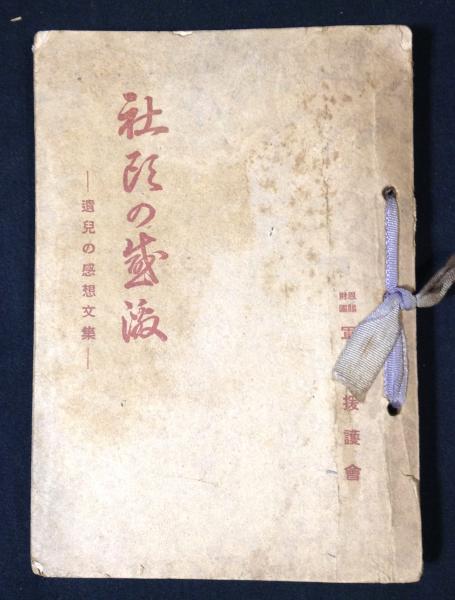 恩賜
財團
軍援護會
社頭の感激
―遺兒の感想文集―